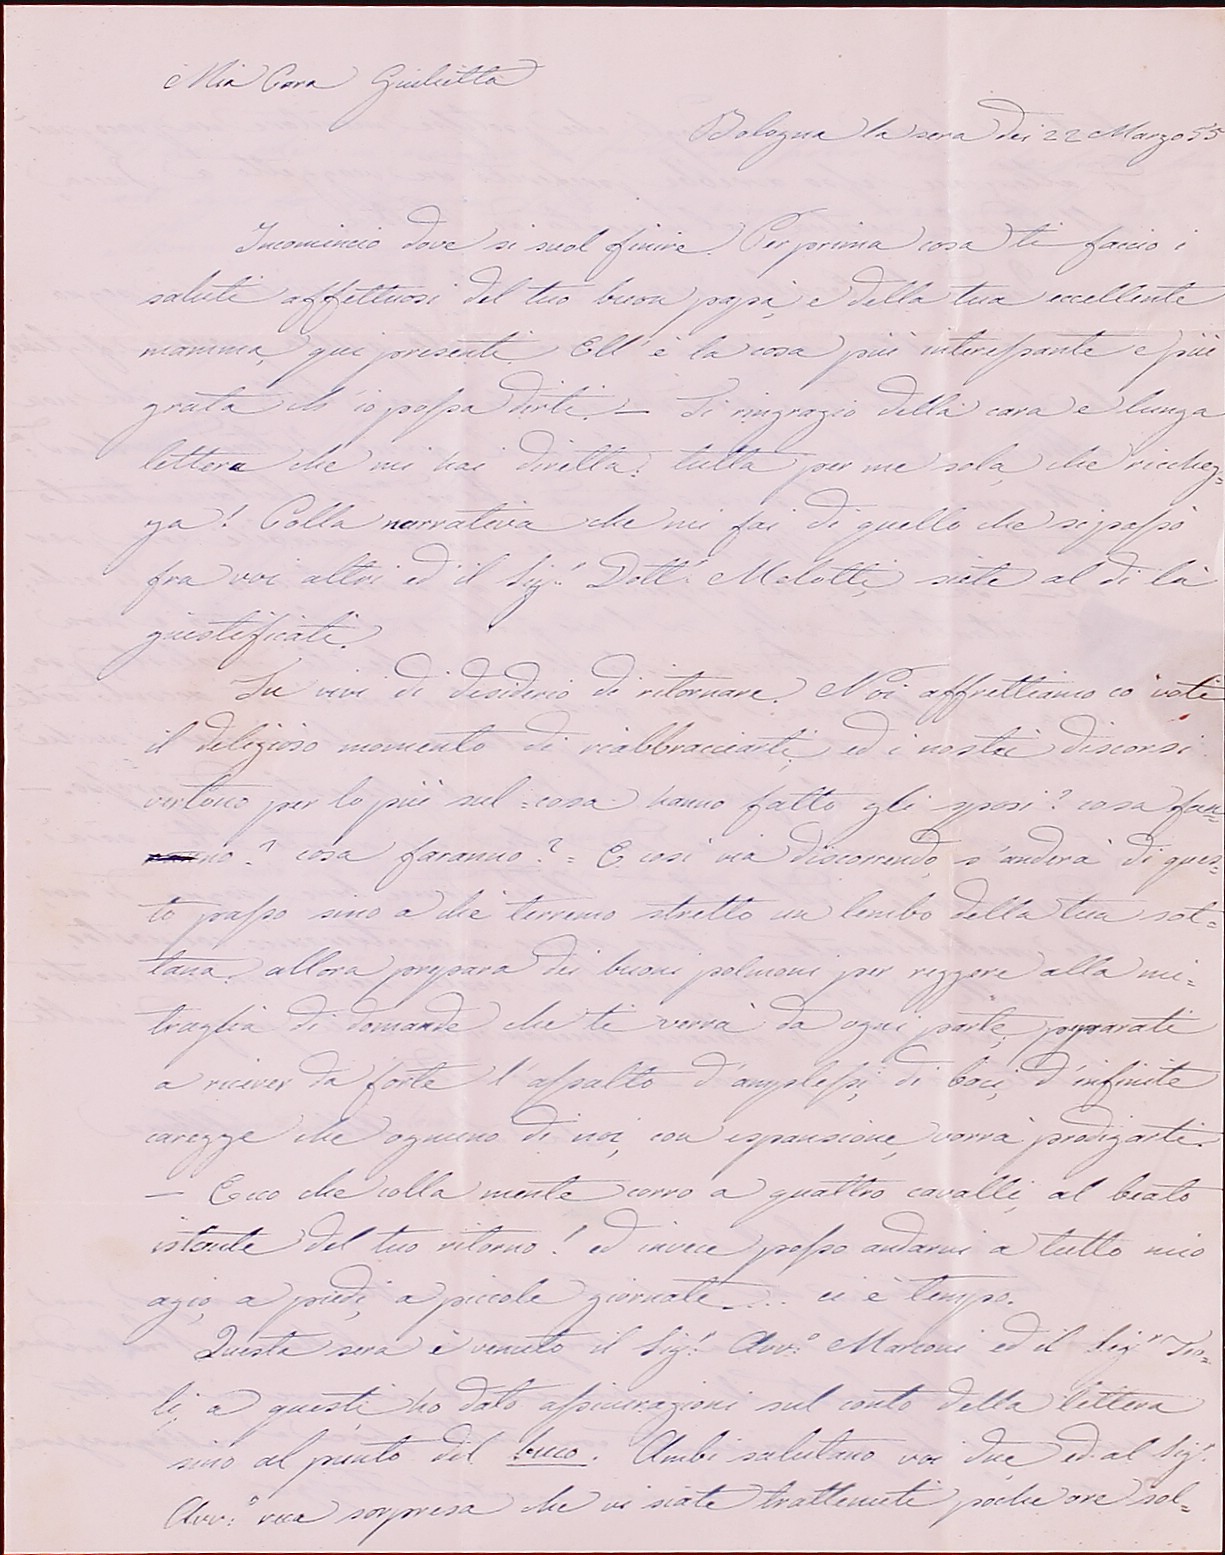 Mia Cara Giulietta
Bologna la sera dei 22 Marzo 55
Incomincio dove si suol finire. Per prima cosa ti faccio i
saluti affettuosi del tuo buon papà, e della tua eccellente
mamma, qui presenti. Ell' è la cosa più interessante e più
grata ch' io possa dirti. — Ti ringrazio della cara e lunga
lettera che mi hai diretta: tutta per me sola, che ricchez=
za! Colla narrativa che mi fai di quello che si passò
fra voi altri ed il Sig.r Dott.r Melotti, siete al di là
giustificati.
Tu vivi di desiderio di ritornare. Noi affrettiamo co' voti
il delizioso momento di riabbracciarti, ed i nostri discorsi
vertono per lo più sul =cosa hanno fatto gli sposi? cosa fan=
no? cosa faranno?= E così via discorrendo, s'anderà di ques=
to passo sino a che terremo stretto un lembo della tua sot=
tana. allora prepara dei buoni polmoni per reggere alla mi=
traglia di domande che ti verrà da ogni parte, preparati
a ricever da forte l'assalto d'amplessi, di baci, d'infinite
carezze che ognuno di noi, con espansione, vorrà prodigarti.
— Ecco che colla mente corro a quattro cavalli, al beato
istante del tuo ritorno! ed invece posso andarmi a tutto mio
agio, a piedi, a piccole giornate.... ci è tempo.
Questa sera è venuto il Sig.r Avv.o Marconi ed il Sig.r Tio=
li, a questi ho dato assicurazioni sul conto della lettera
sino al punto del buco. Ambi salutano voi due, ed al Sig.r
Avv.o reca sorpresa che vi siate trattenuti poche ore sol=